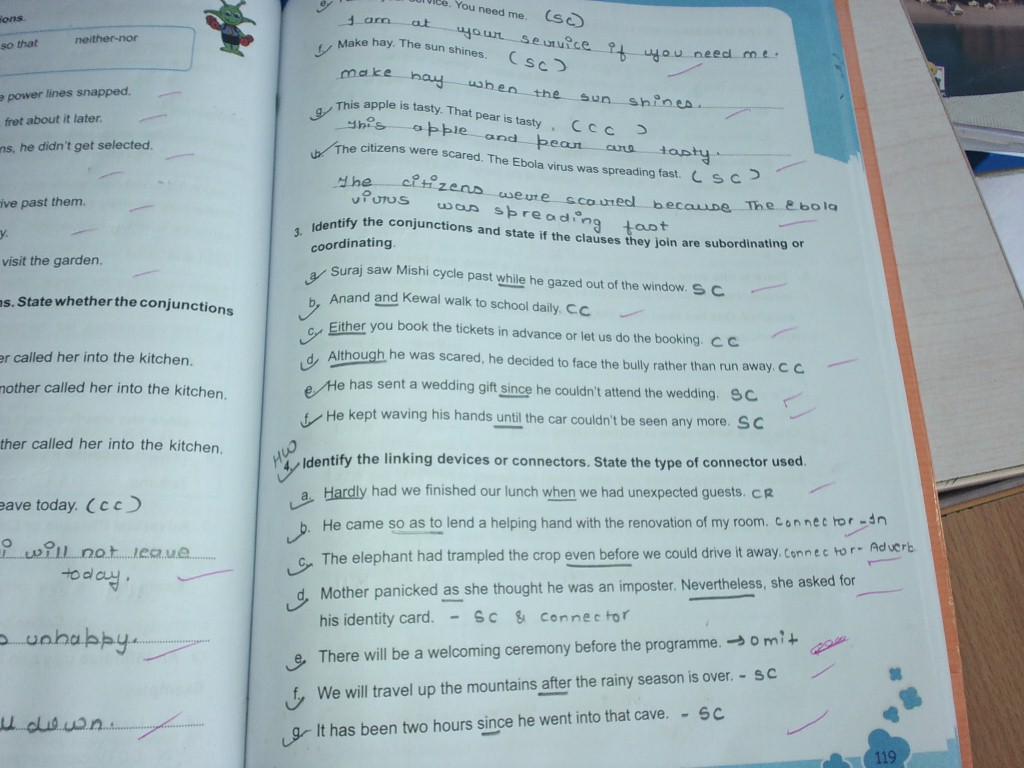 ions.
so that neither-nor
e power lines snapped.
fret about it later.
ns, he didn't get selected.
ive past them.
y.
visit the garden.
ns. State whether the conjunctions
er called her into the kitchen.
mother called her into the kitchen.
ther called her into the kitchen.
eave today. (CC)
i will not leave
today.
unhappy.
down.
service. You need me. (SC)
I am at your service if you need me.
f. Make hay. The sun shines. (SC)
make hay when the sun shines.
g. This apple is tasty. That pear is tasty. (CCC)
This apple and pear are tasty.
h. The citizens were scared. The Ebola virus was spreading fast. (SC)
The citizens were scared because The Ebola
virus was spreading fast
3. Identify the conjunctions and state if the clauses they join are subordinating or
coordinating.
a. Suraj saw Mishi cycle past while he gazed out of the window. SC
b. Anand and Kewal walk to school daily. CC
c. Either you book the tickets in advance or let us do the booking. CC
d. Although he was scared, he decided to face the bully rather than run away. CC
e. He has sent a wedding gift since he couldn't attend the wedding. SC
f. He kept waving his hands until the car couldn't be seen any more. SC
HW
4. Identify the linking devices or connectors. State the type of connector used.
a. Hardly had we finished our lunch when we had unexpected guests. CR
b. He came so as to lend a helping hand with the renovation of my room. Connector - In
c. The elephant had trampled the crop even before we could drive it away. Connector - Adverb
d. Mother panicked as she thought he was an imposter. Nevertheless, she asked for
his identity card. - SC & connector
e. There will be a welcoming ceremony before the programme. → omit
f. We will travel up the mountains after the rainy season is over. - SC
g. It has been two hours since he went into that cave. - SC
119